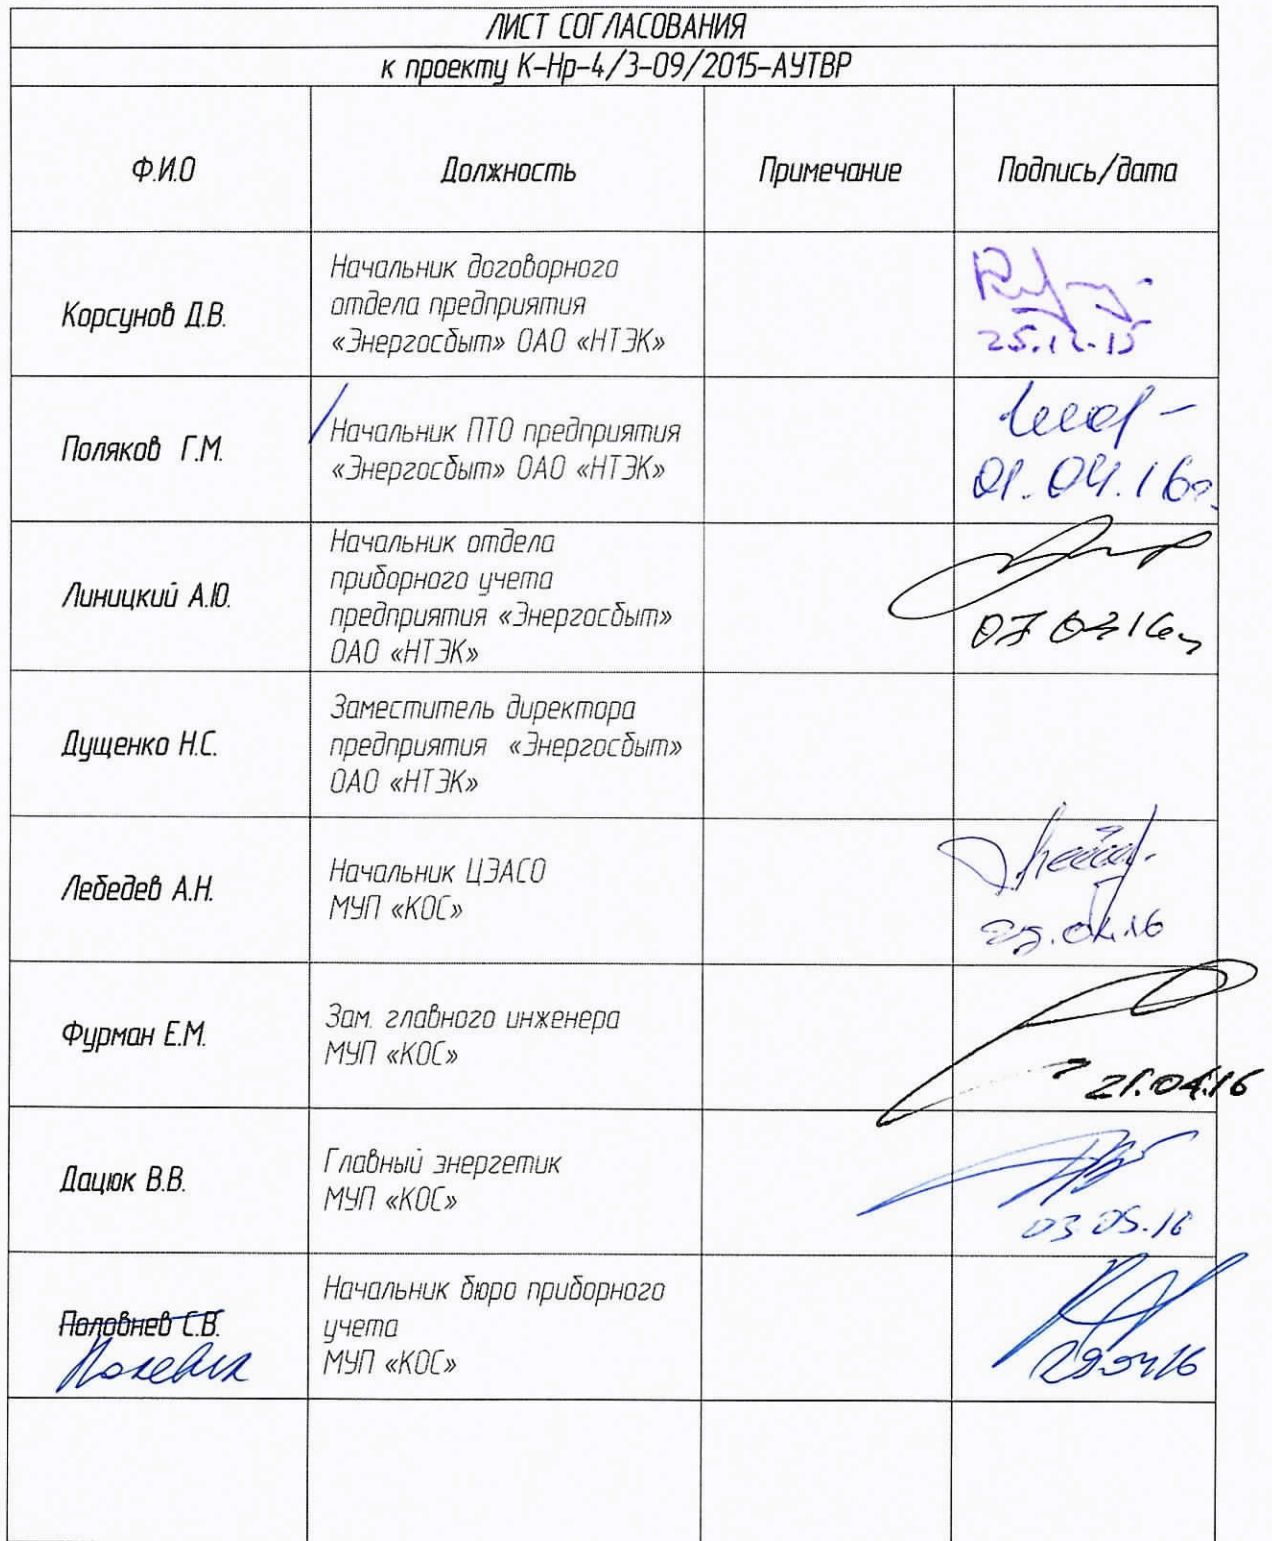 ЛИСТ СОГЛАСОВАНИЯ
к проекту К-Нр-4/3-09/2015-АУТВР
Ф.И.О
Должность
Примечание
Подпись/дата
Корсунов Д.В.
Начальник договорного
отдела предприятия
«Энергосбыт» ОАО «НТЭК»
25.12.15
Поляков Г.М.
Начальник ПТО предприятия
«Энергосбыт» ОАО «НТЭК»
01.04.16г.
Линицкий А.Ю.
Начальник отдела
приборного учета
предприятия «Энергосбыт»
ОАО «НТЭК»
Дущенко Н.С.
Заместитель директора
предприятия «Энергосбыт»
ОАО «НТЭК»
Лебедев А.Н.
Начальник ЦЭАСО
МУП «КОС»
Фурман Е.М.
Зам. главного инженера
МУП «КОС»
21.04.16
Дацюк В.В.
Главный энергетик
МУП «КОС»
03.05.16
Половнев С.В.
Начальник бюро приборного
учета
МУП «КОС»
29.04.16